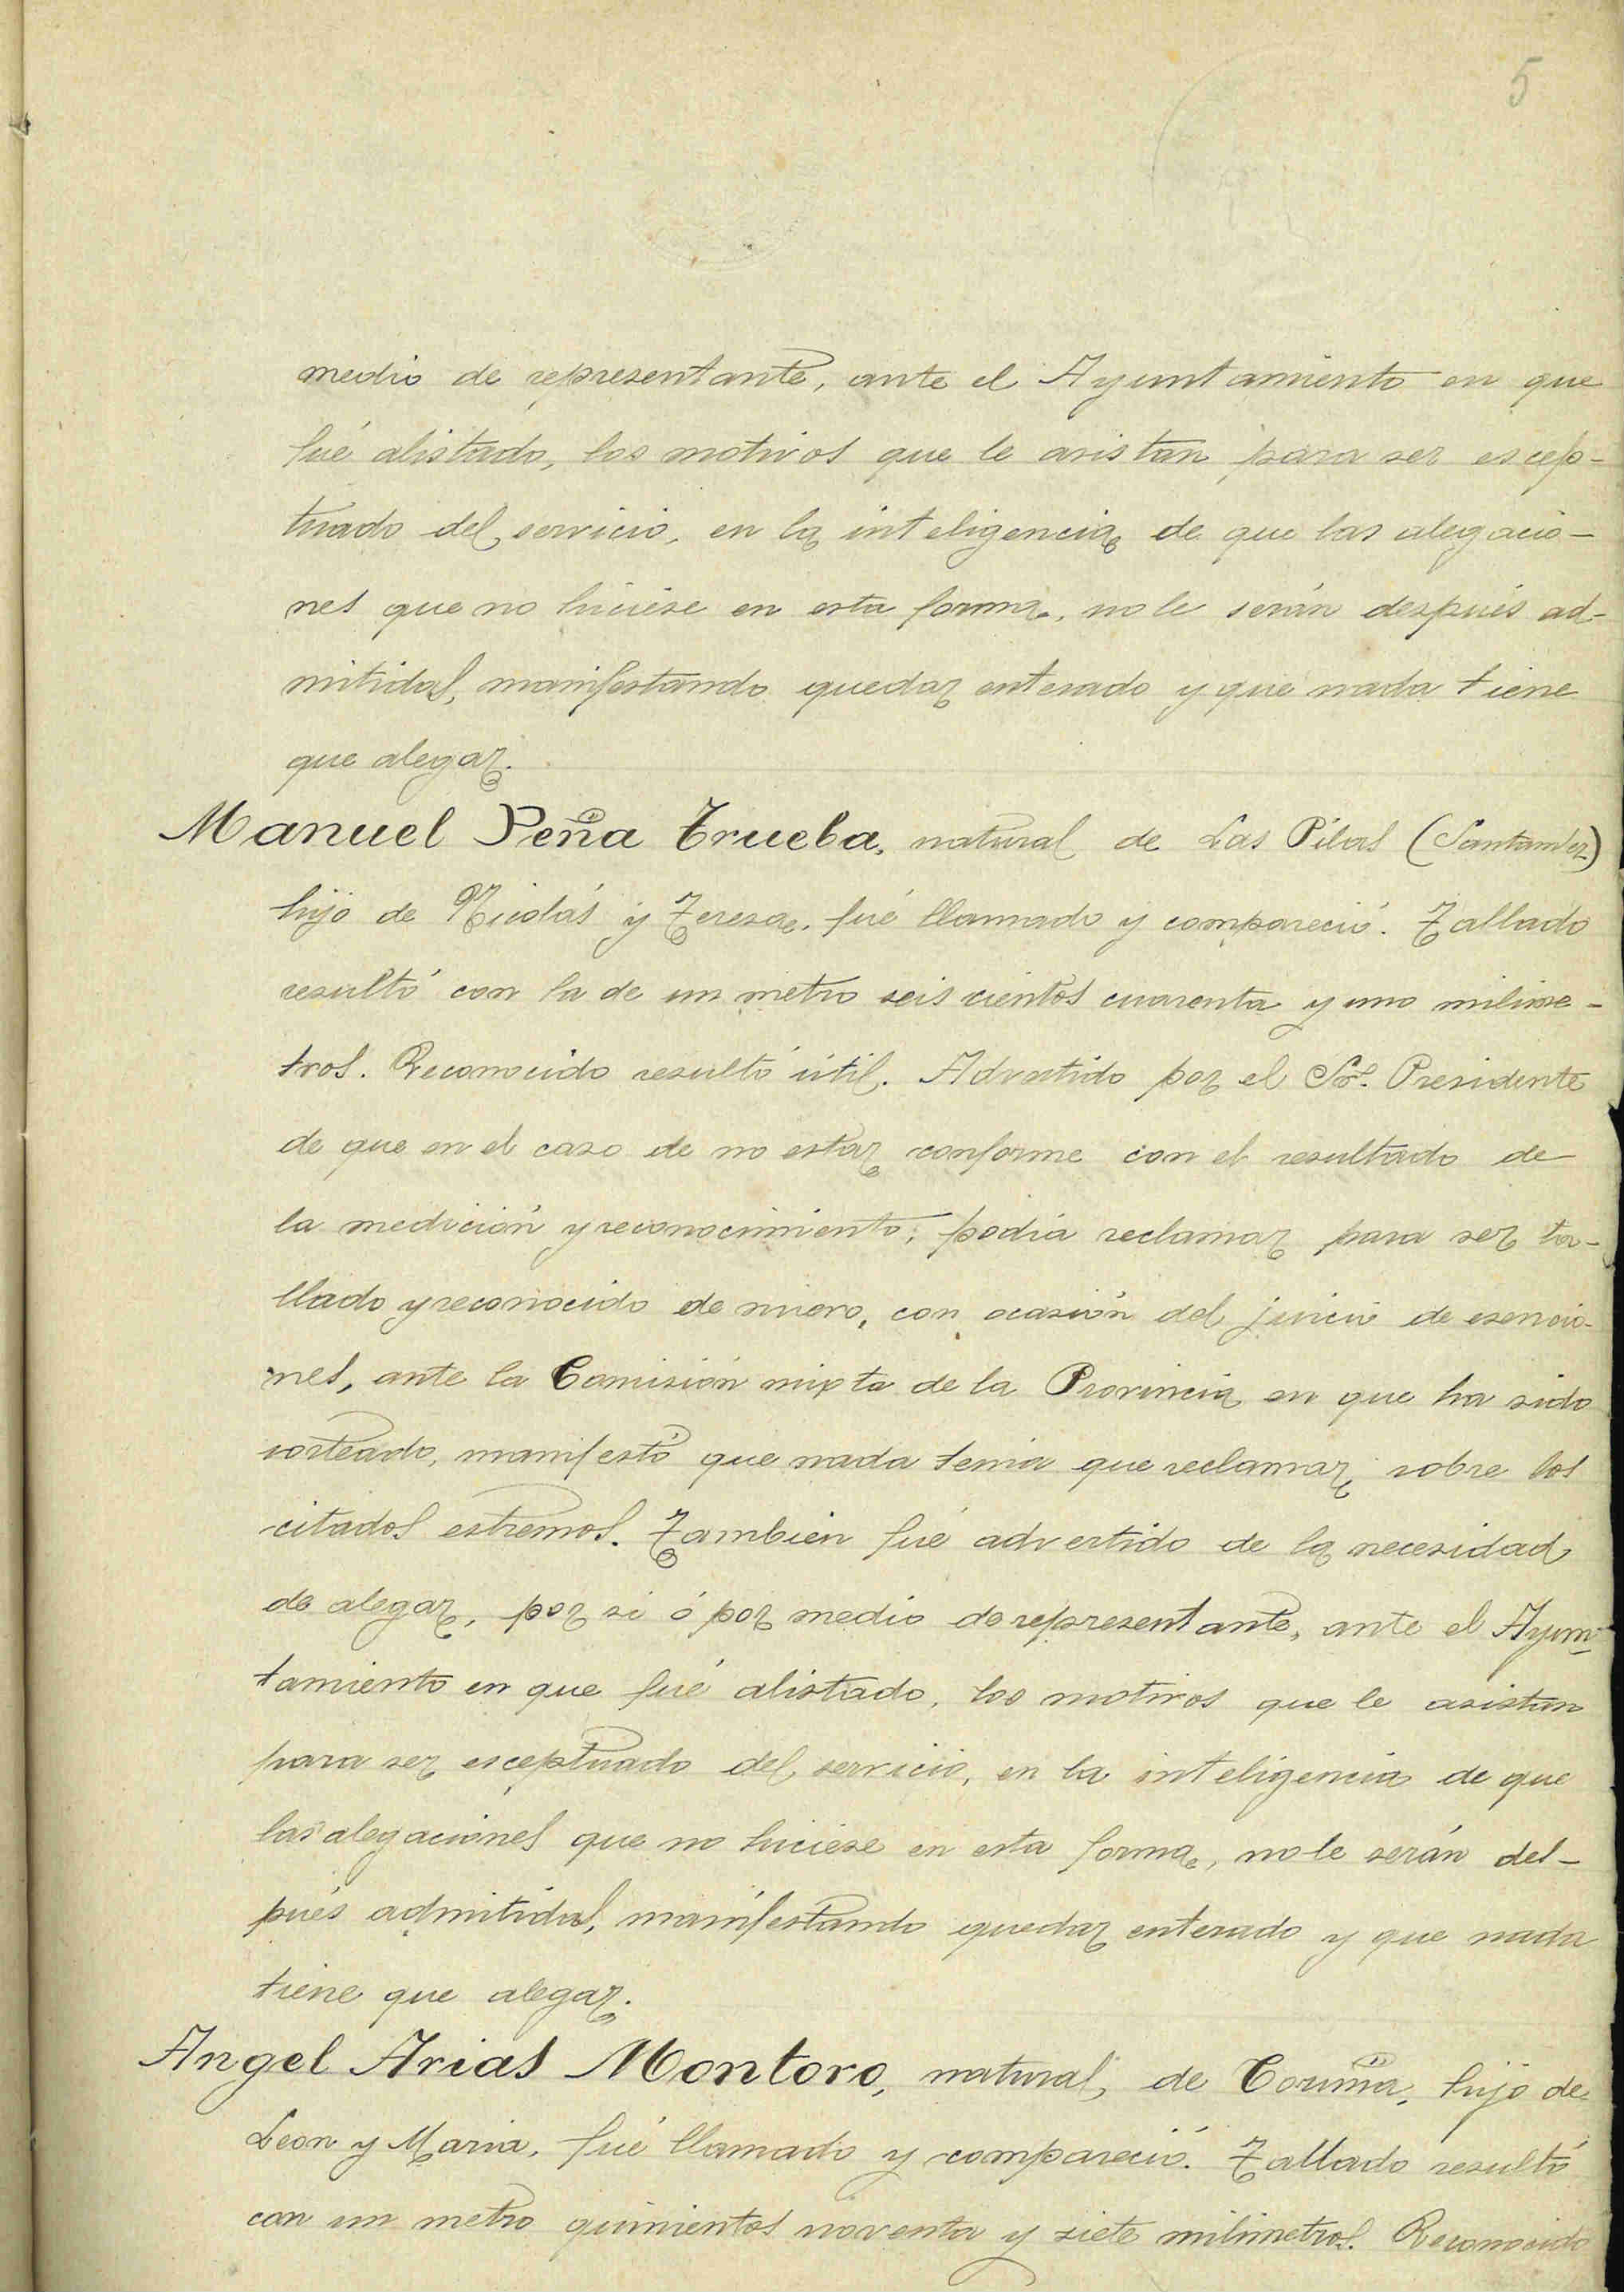 5
medio de representante, ante el Ayuntamiento en que
fué alistado, los motivos que le asistan para ser escep-
tuado del servicio, en la inteligencia de que las alegacio-
nes que no hiciese en esta forma, no le serán después ad-
mitidas, manifestando quedar enterado y que nada tiene
que alegar.
Manuel Peña Trueba, natural de Las Pilas (Santander)
hijo de Nicolás y Teresa, fué llamado y compareció. Tallado
resultó con la de un metro seis cientos cuarenta y uno milime-
tros. Reconocido resultó útil. Advertido por el Sor. Presidente
de que en el caso de no estar conforme con el resultado de
la medición y reconocimiento, podia reclamar para ser ta-
llado y reconocido de nuevo, con ocasión del juicio de esencio-
nes, ante la Comisión mixta de la Provincia en que ha sido
sorteado, manifestó que nada tenia que reclamar sobre los
citados estremos. Tambien fué advertido de la necesidad
de alegar, por si ó por medio de representante, ante el Ayun-
tamiento en que fué alistado, los motivos que le asistan
para ser esceptuado del servicio, en la inteligencia de que
las alegaciones que no hiciese en esta forma, no le serán des-
pués admitidas, manifestando quedar enterado y que nada
tiene que alegar.
Angel Arias Montoro, natural de Coruña, hijo de
Leon y Maria, fué llamado y compareció. Tallado resultó
con un metro quinientos noventa y siete milimetros. Reconocido